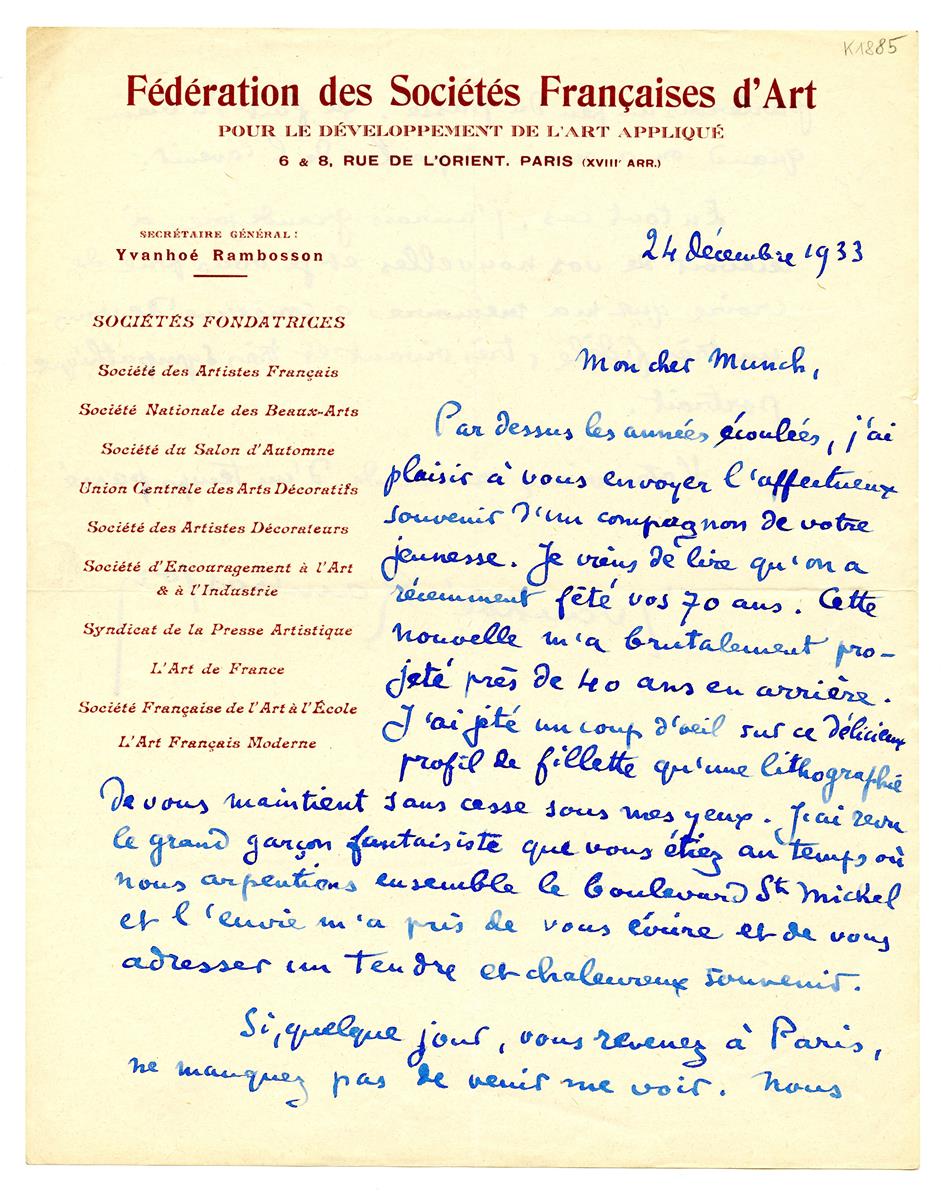 K1885
Fédération des Sociétés Françaises d'Art
POUR LE DÉVELOPPEMENT DE L'ART APPLIQUÉ
6 & 8, RUE DE L'ORIENT. PARIS (XVIIIe ARR.)
SECRÉTAIRE GÉNÉRAL :
Yvanhoé Rambosson
24 décembre 1933
SOCIÉTÉS FONDATRICES
Société des Artistes Français
Société Nationale des Beaux-Arts
Société du Salon d'Automne
Union Centrale des Arts Décoratifs
Société des Artistes Décorateurs
Société d'Encouragement à l'Art
& à l'Industrie
Syndicat de la Presse Artistique
L'Art de France
Société Française de l'Art à l'École
L'Art Français Moderne
Mon cher Munch,
Par dessus les années écoulées, j'ai
plaisir à vous envoyer l'affectueux
souvenir d'un compagnon de votre
jeunesse. Je viens de lire qu'on a
récemment fêté vos 70 ans. Cette
nouvelle m'a brutalement pro-
jeté près de 40 ans en arrière.
J'ai jeté un coup d'oeil sur ce délicieux
profil de fillette qu'une lithographie
de vous maintient sans cesse sous mes yeux. J'ai revu
le grand garçon fantaisiste que vous étiez au temps où
nous arpentions ensemble le boulevard St Michel
et l'envie m'a pris de vous écrire et de vous
adresser un tendre et chaleureux souvenir.
Si, quelque jour, vous revenez à Paris,
ne manquez pas de venir me voir. Nous